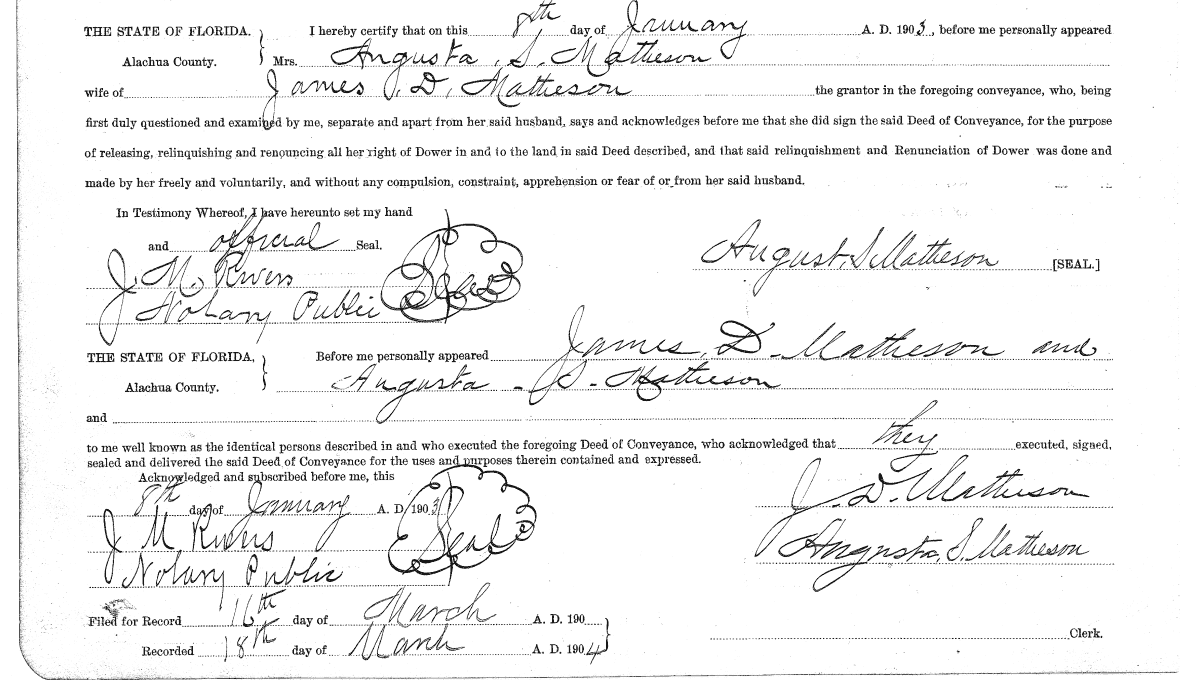 THE STATE OF FLORIDA. } I hereby certify that on this 8th day of January A. D. 1903, before me personally appeared
Alachua County. Mrs. Augusta S. Matheson
wife of James D. Matheson the grantor in the foregoing conveyance, who, being
first duly questioned and examined by me, separate and apart from her said husband, says and acknowledges before me that she did sign the said Deed of Conveyance, for the purpose
of releasing, relinquishing and renouncing all her right of Dower in and to the land in said Deed described, and that said relinquishment and Renunciation of Dower was done and
made by her freely and voluntarily, and without any compulsion, constraint, apprehension or fear of or from her said husband.
In Testimony Whereof, I have hereunto set my hand
and official Seal.
August, S Matheson [SEAL.]
J. M. Rivers
Notary Public Seal
THE STATE OF FLORIDA, } Before me personally appeared James, D. Matheson and
Alachua County. Augusta - S. Matheson
and
to me well known as the identical persons described in and who executed the foregoing Deed of Conveyance, who acknowledged that they executed, signed,
sealed and delivered the said Deed of Conveyance for the uses and purposes therein contained and expressed.
Acknowledged and subscribed before me, this
8th day of January A. D. 1903
J. D. Matheson
J M Rivers Seal
Augusta, S. Matheson
Notary Public
Filed for Record 16th day of March A. D. 190
Recorded 18th day of March A. D. 1904 }
Clerk.